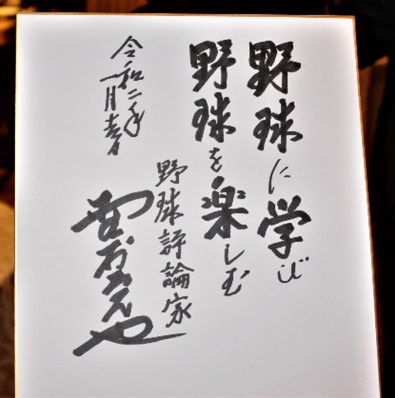 野球に学び
野球を楽しむ
令和二年
一月吉日
野球評論家